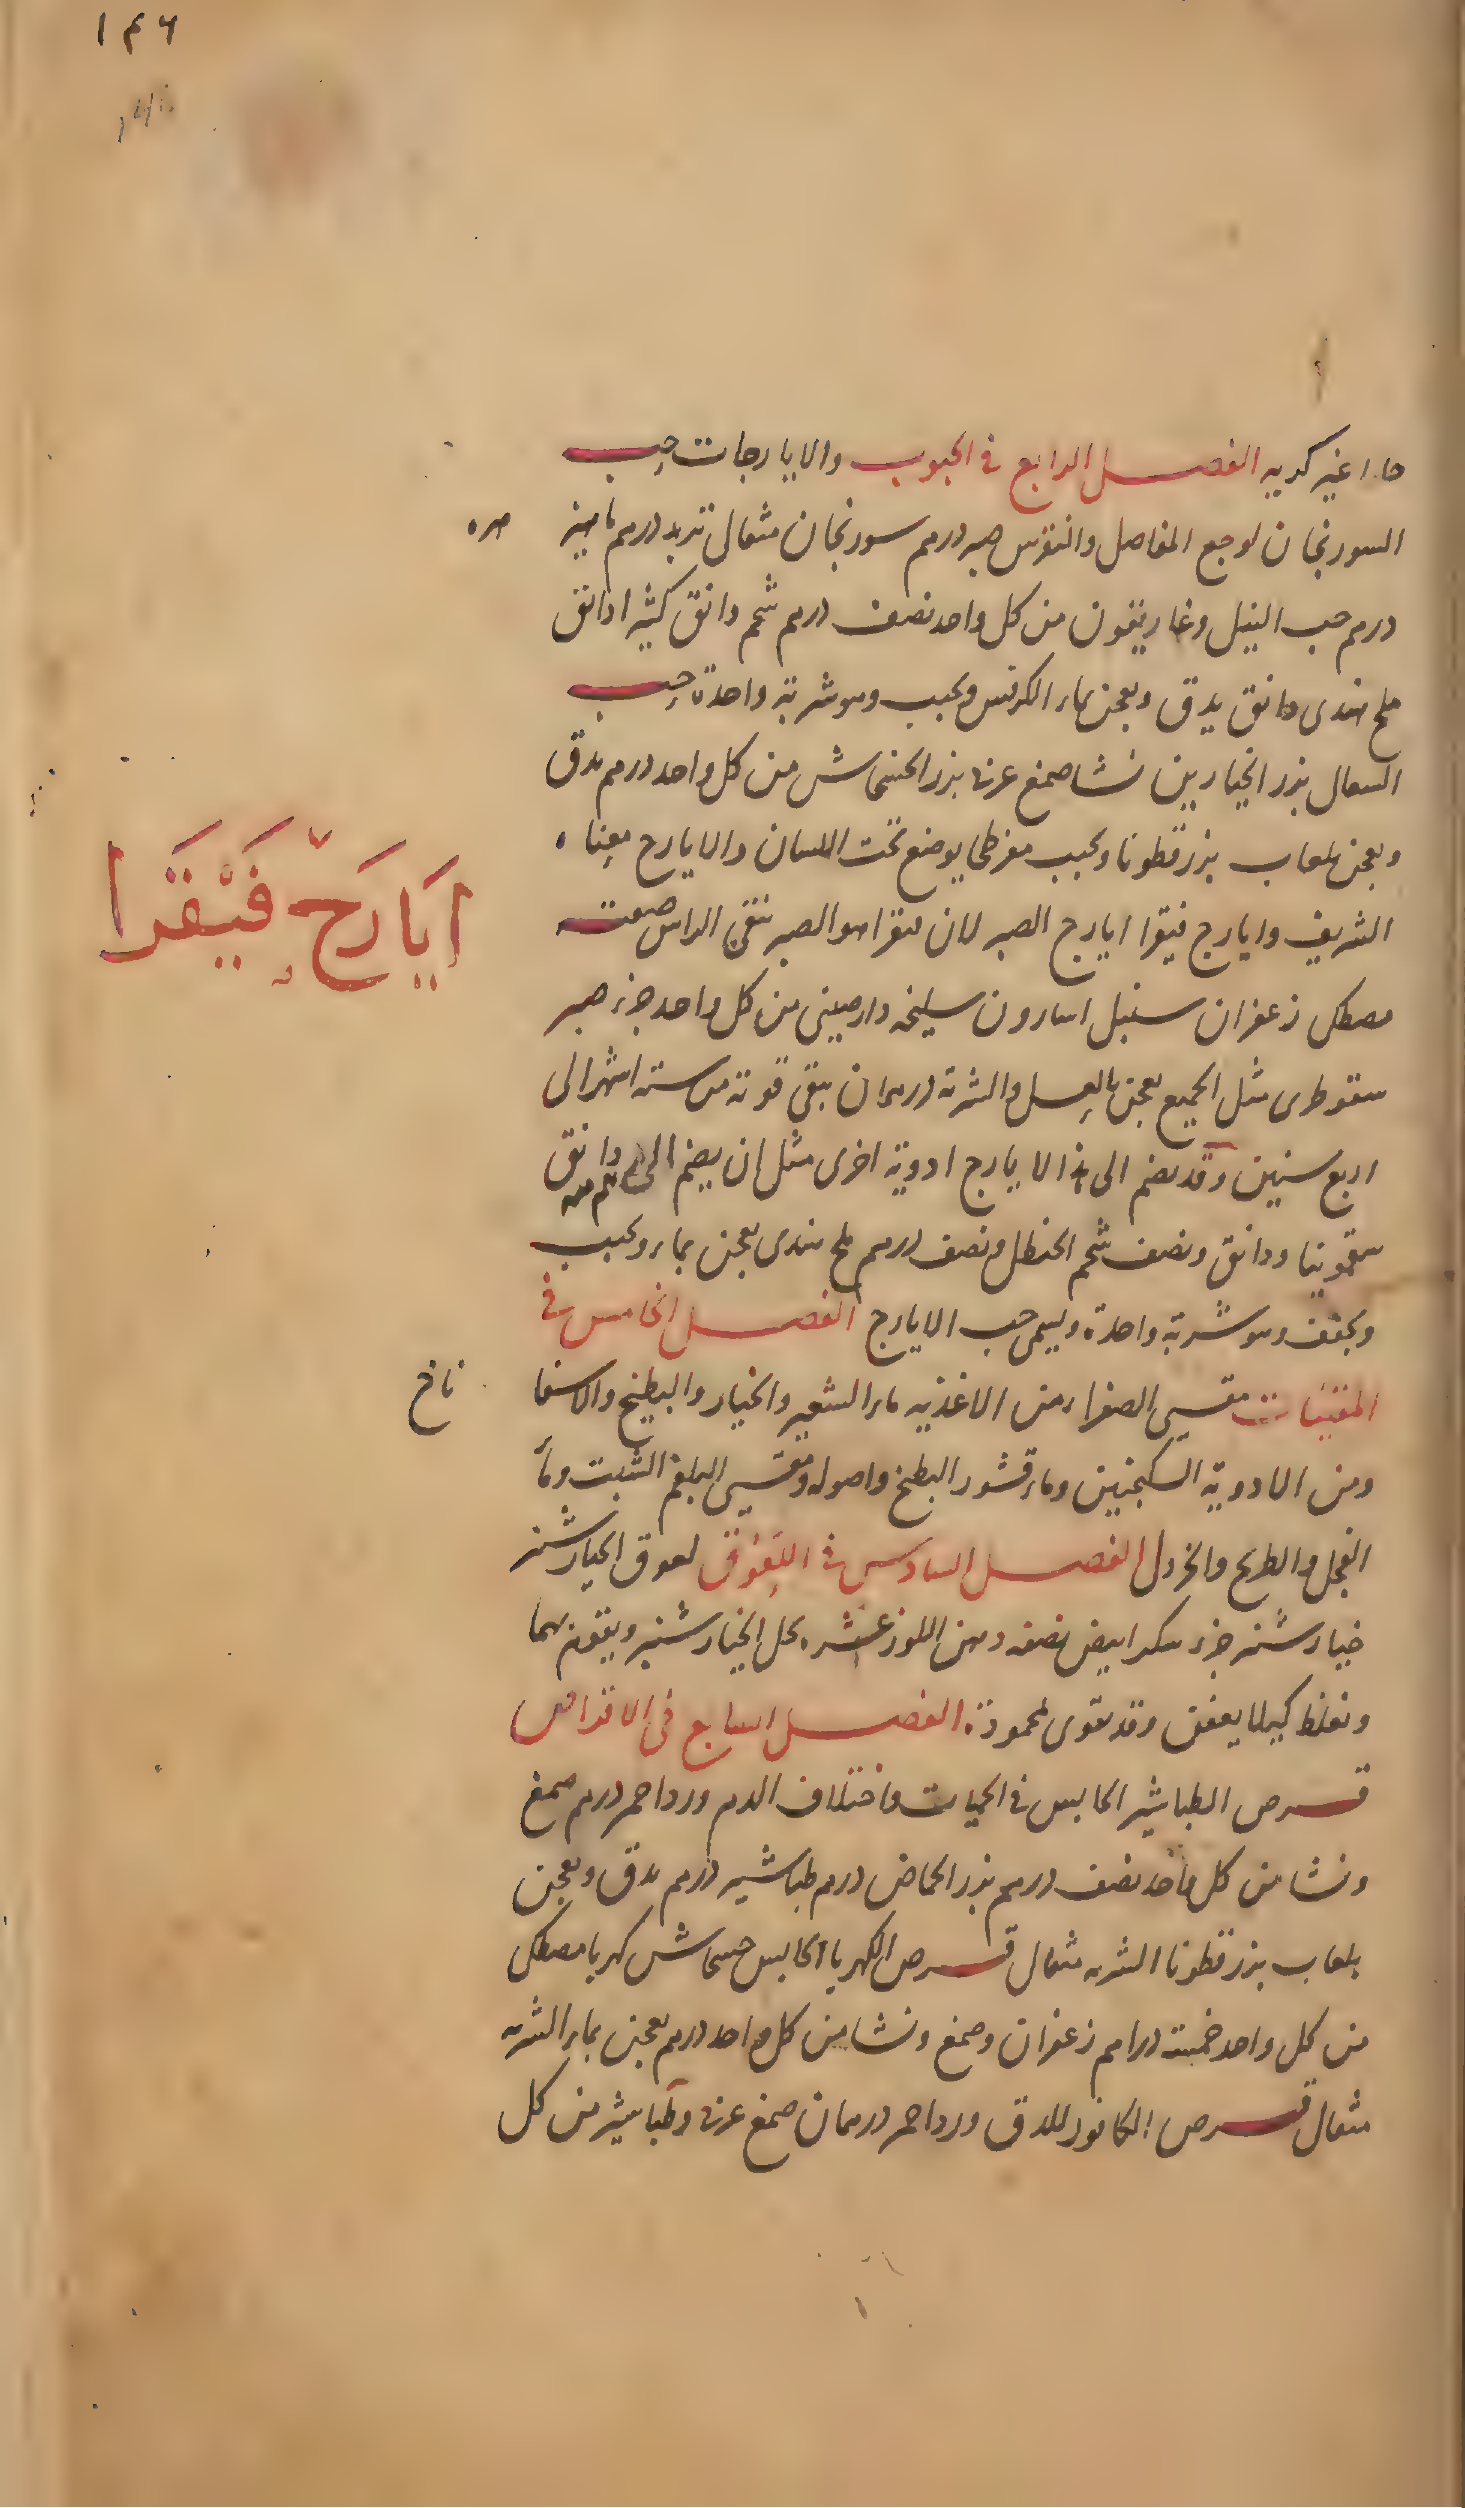 ١٤٦
حارا غير كريه الفصل الرابع فى الحبوب والايارجات حب
السورنجان لوجع المفاصل والنقرس صبر درهم سورنجان مثقال تربد درهم ماهيز
هره
درهم حب النيل وغاريقون من كل واحد نصف درهم شحم دانق كثيرا دانق
ملح هندى دانق يدق ويعجن بماء الكرفس ويحبب وهو شربة واحدة حب
السعال بزر الخيارين نشا صمغ عربى بزر الخشخاش من كل واحد درهم يدق
ويعجن بلعاب بزر قطونا ويحبب مفرطحا يوضع تحت اللسان والايارج معناه
الشريف وايارج فيقرا ايارج الصبر لان فيقرا هو الصبر ينقى الراس صنعته
اَيَارَجْ فَيْقَرَا
مصطكى زعفران سنبل اسارون سليخه دارصينى من كل واحد جزء صبر
سقوطرى مثل الجميع يعجن بالعسل والشربة درهمان يبقى قوته من ستة اشهر الى
اربع سنين وقد يضم الى هذا الايارج ادوية اخرى مثل ان يضم الى درهم منه دانق
سقمونيا ودانق ونصف شحم الحنظل ونصف درهم ملح هندى يعجن بماء ويحبب
ويجفف وهو شربة واحدة ويسمى حب الايارج الفصل الخامس فى
المقيئات مقيى الصفراء من الاغذيه ماء الشعير والخيار والبطيخ والاسفا
ناخ
ومن الادوية السكنجبين وماء قشور البطيخ واصوله ومقيى البلغم الشبت وماء
الفجل والطريخ والخردل الفصل السادس فى اللعوق لعوق الخيارشنبر
خيارشنبر جزء سكر ابيض نصفه دهن اللوز عشره يحل الخيارشنبر ويقوم بهما
ويغلظ كيلا يعفن وقد يقوى بمحمودة الفصل السابع فى الاقراص
قرص الطباشير الحابس فى الحميات واختلاف الدم ورد احمر درهم صمغ
ونشا من كل واحد نصف درهم بزر الحماض درهم طباشير درهم يدق ويعجن
بلعاب بزر قطونا الشربه مثقال قرص الكهربا الحابس خشخاش كهربا مصطكى
من كل واحد خمسة دراهم زعفران وصمغ ونشا من كل واحد درهم يعجن بماء الشربه
مثقال قرص الكافور للدق ورد احمر درهمان صمغ عربى وطباشير من كل